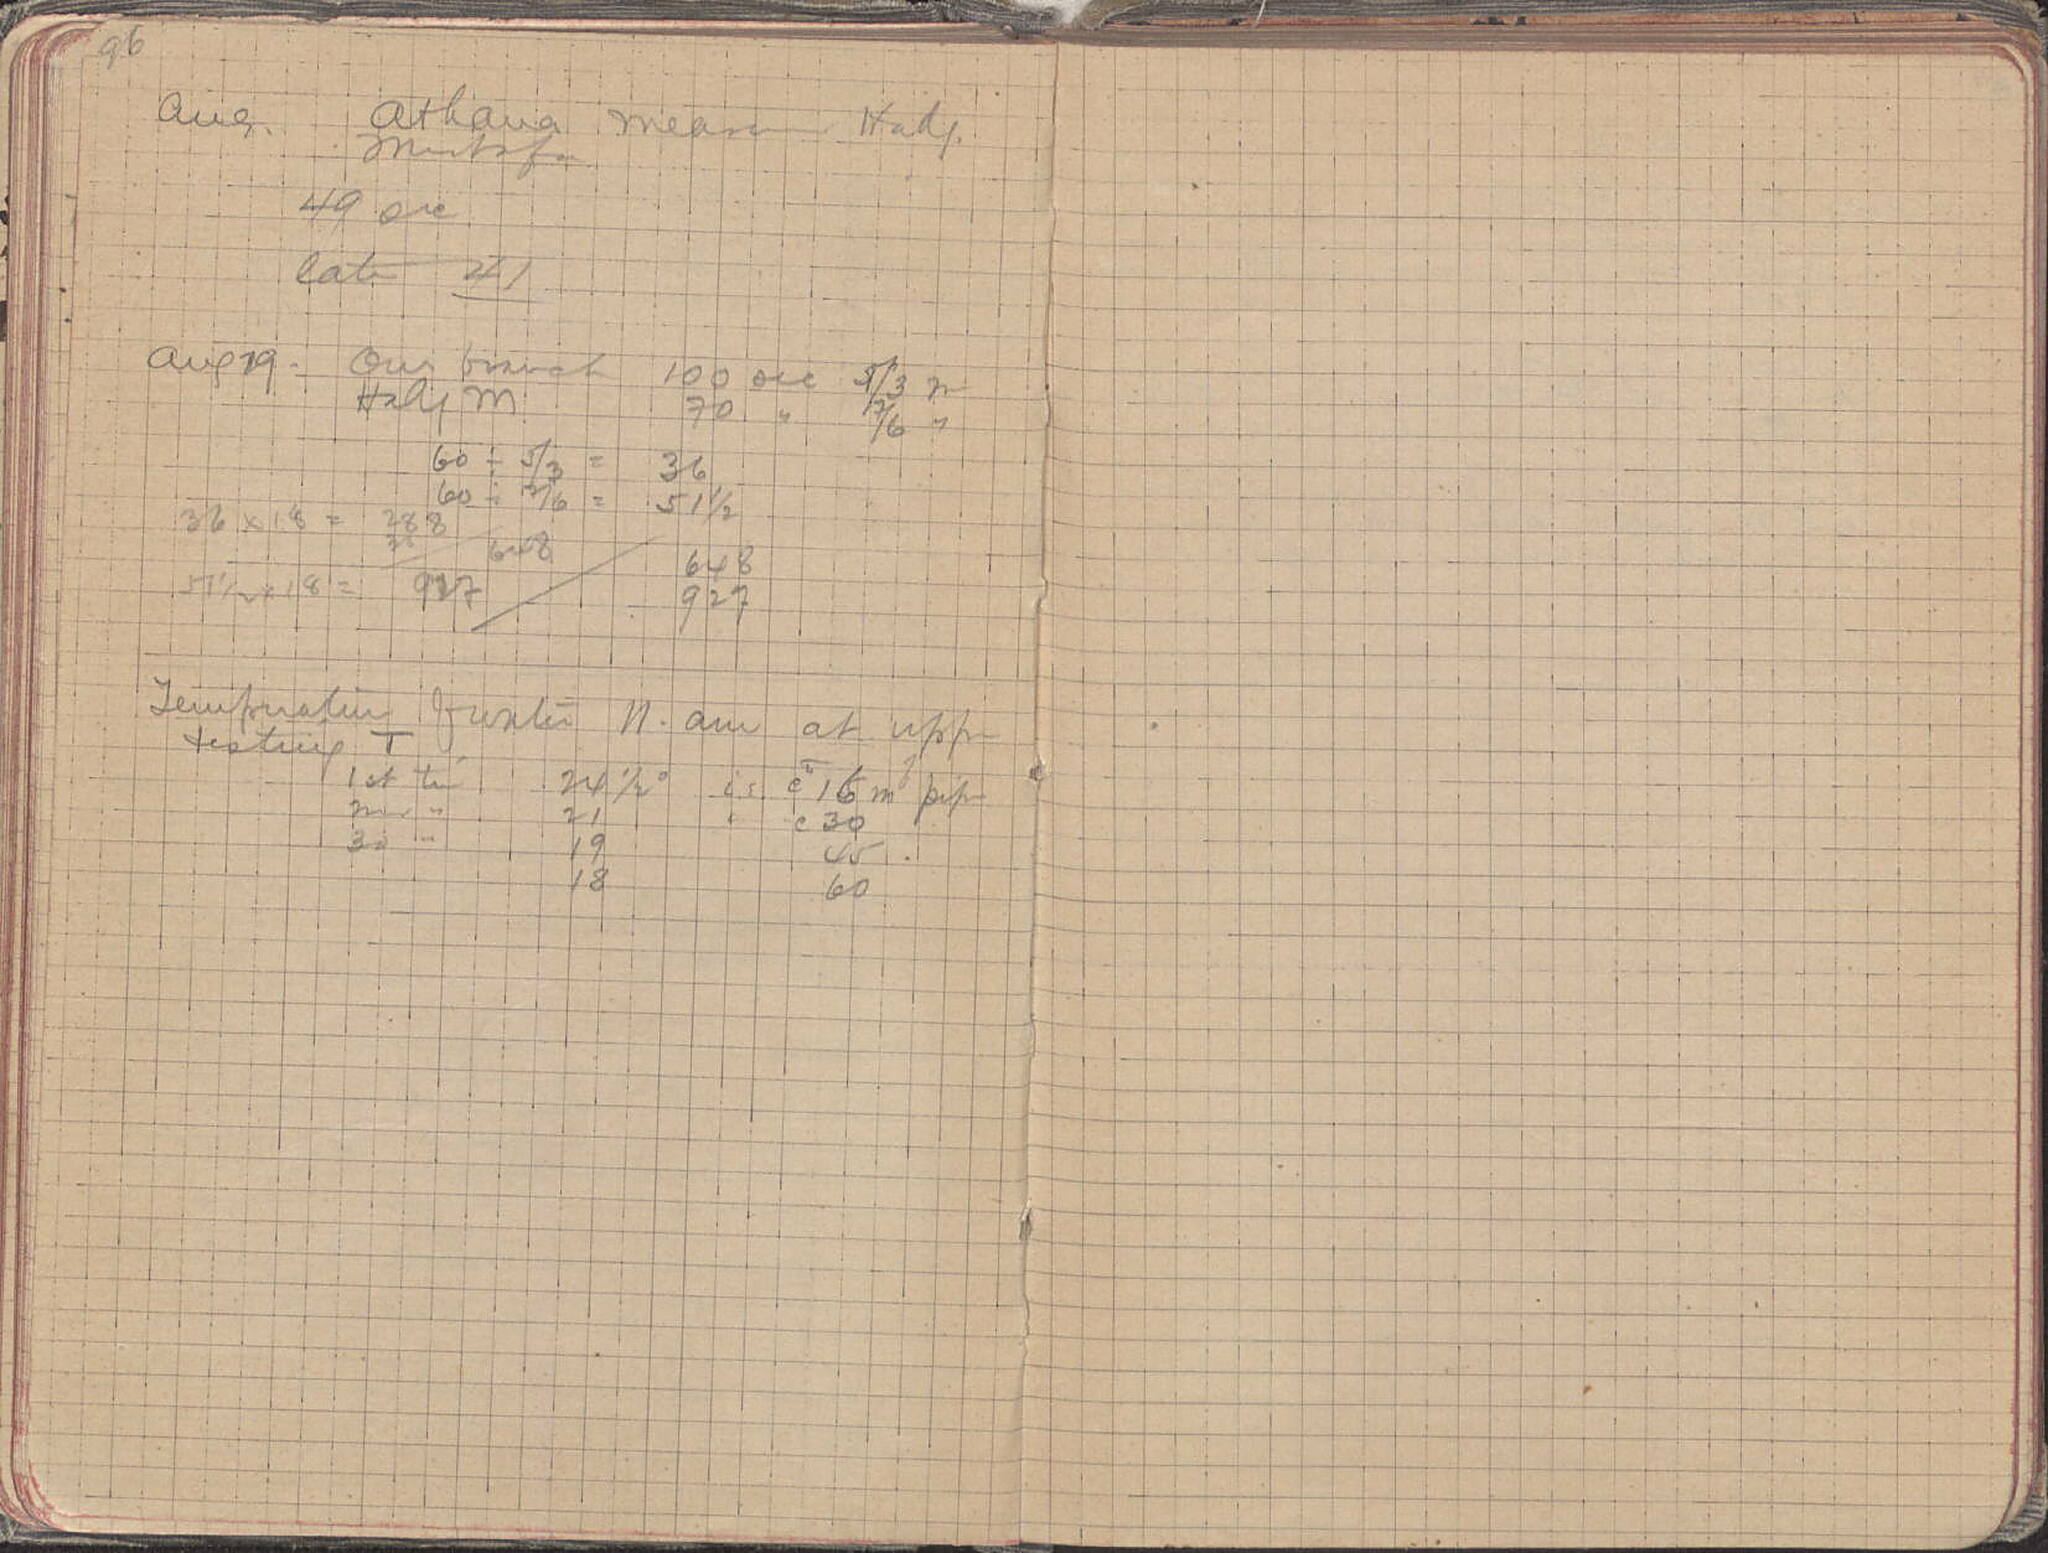 96
Aug. Athana measure Hadj.
Mustafa
49 sec
later 41
Aug 29. Our branch 100 sec 5/3 m
Hadj M 70 " 7/6 "
60 ÷ 5/3 = 36
60 ÷ 7/6 = 51 1/2
36 x 18 = 288
36
648
648
51 1/2 x 18 = 927
927
Temperature water N. am at upper
testing T
1st time 24 1/2° i.e. 15 m of pipe
21 30
3d " 19 45
18 60